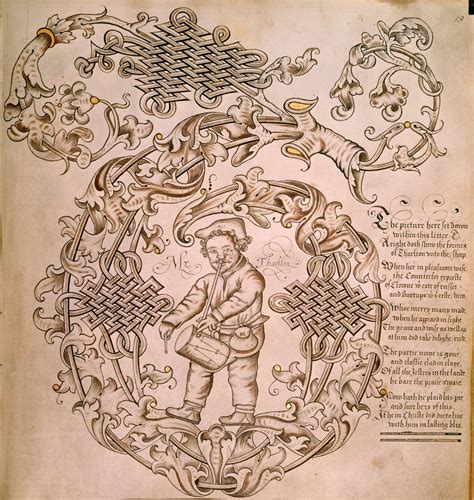 19
Mr Tharlton
The picture here set down
within this letter T
Aright doth shew the forme
of Tharlton vnto the shap
When hee in pleasaunt wise
the Counterfet expreste
of Clowne wt cote of russet
and sturtups wt reste
Whoe merry many made
when he appeard in sight
The graue and wise as well as rude
at him did take delight
The partie nowe is gone
and closlie clad in claye
Of all the Jesters in the lande
he bare the praise awaie
Now hath he plaid his par
and sure he is of this
If he in Christe did die to liue
with him in lasting blis